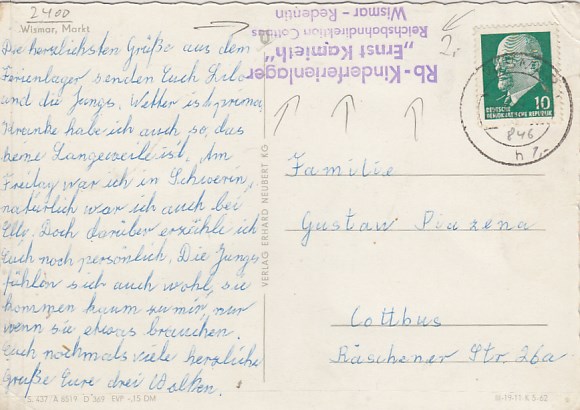 2400
Wismar, Markt
Die herzlichsten Grüße aus dem
Ferienlager senden Euch Lilo
und die Jungs. Wetter ist prima,
Kranke habe ich auch so, das
keine Langeweile ist. Am
Freitag war ich in Schwerin,
natürlich war ich auch bei
Elly. Doch darüber erzähle ich
Euch noch persönlich. Die Jungs
fühlen sich auch wohl, sie
kommen kaum zu mir, nur
wenn sie etwas brauchen.
Euch nochmals viele herzliche
Grüße Eure drei Wolken.
437/A 6519 D 369 EVP -,15 DM
VERLAG ERHARD NEUBERT KG
Rb-Kinderferienlager
„Ernst Kamieth“
Reichsbahndirektion Cottbus
Wismar - Redentin
2,-
10
DEUTSCHE
DEMOKRATISCHE REPUBLIK
846
h 7,-
Familie
Gustav Piazena
Cottbus
Räschener Str. 26a
III-19-11 K 5 62